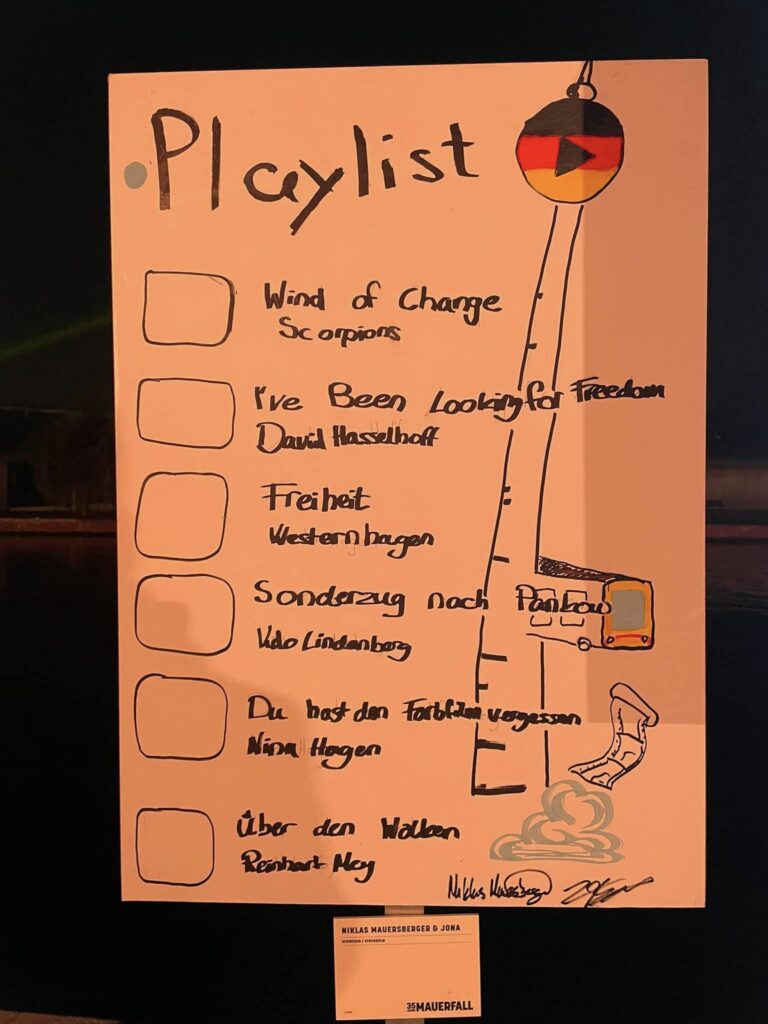 Playlist
Wind of Change
Scorpions
I've Been Looking for Freedom
David Hasselhoff
Freiheit
Westernhagen
Sonderzug nach Pankow
Udo Lindenberg
Du hast den Farbfilm vergessen
Nina Hagen
Über den Wolken
Reinhart Mey
Niklas Mauersberger
NIKLAS MAUERSBERGER & JONA
35 JAHRE MAUERFALL